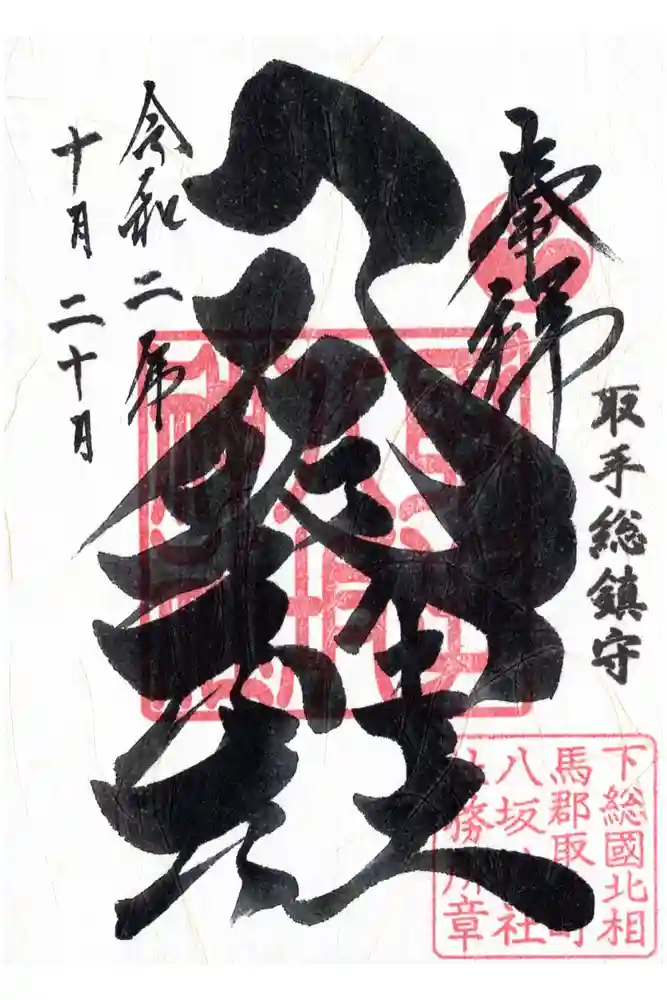 取手総鎮守
奉拝
八坂神社
令和二年
十月二十日
下総國北相
馬郡取手町
八坂神社
社務所章